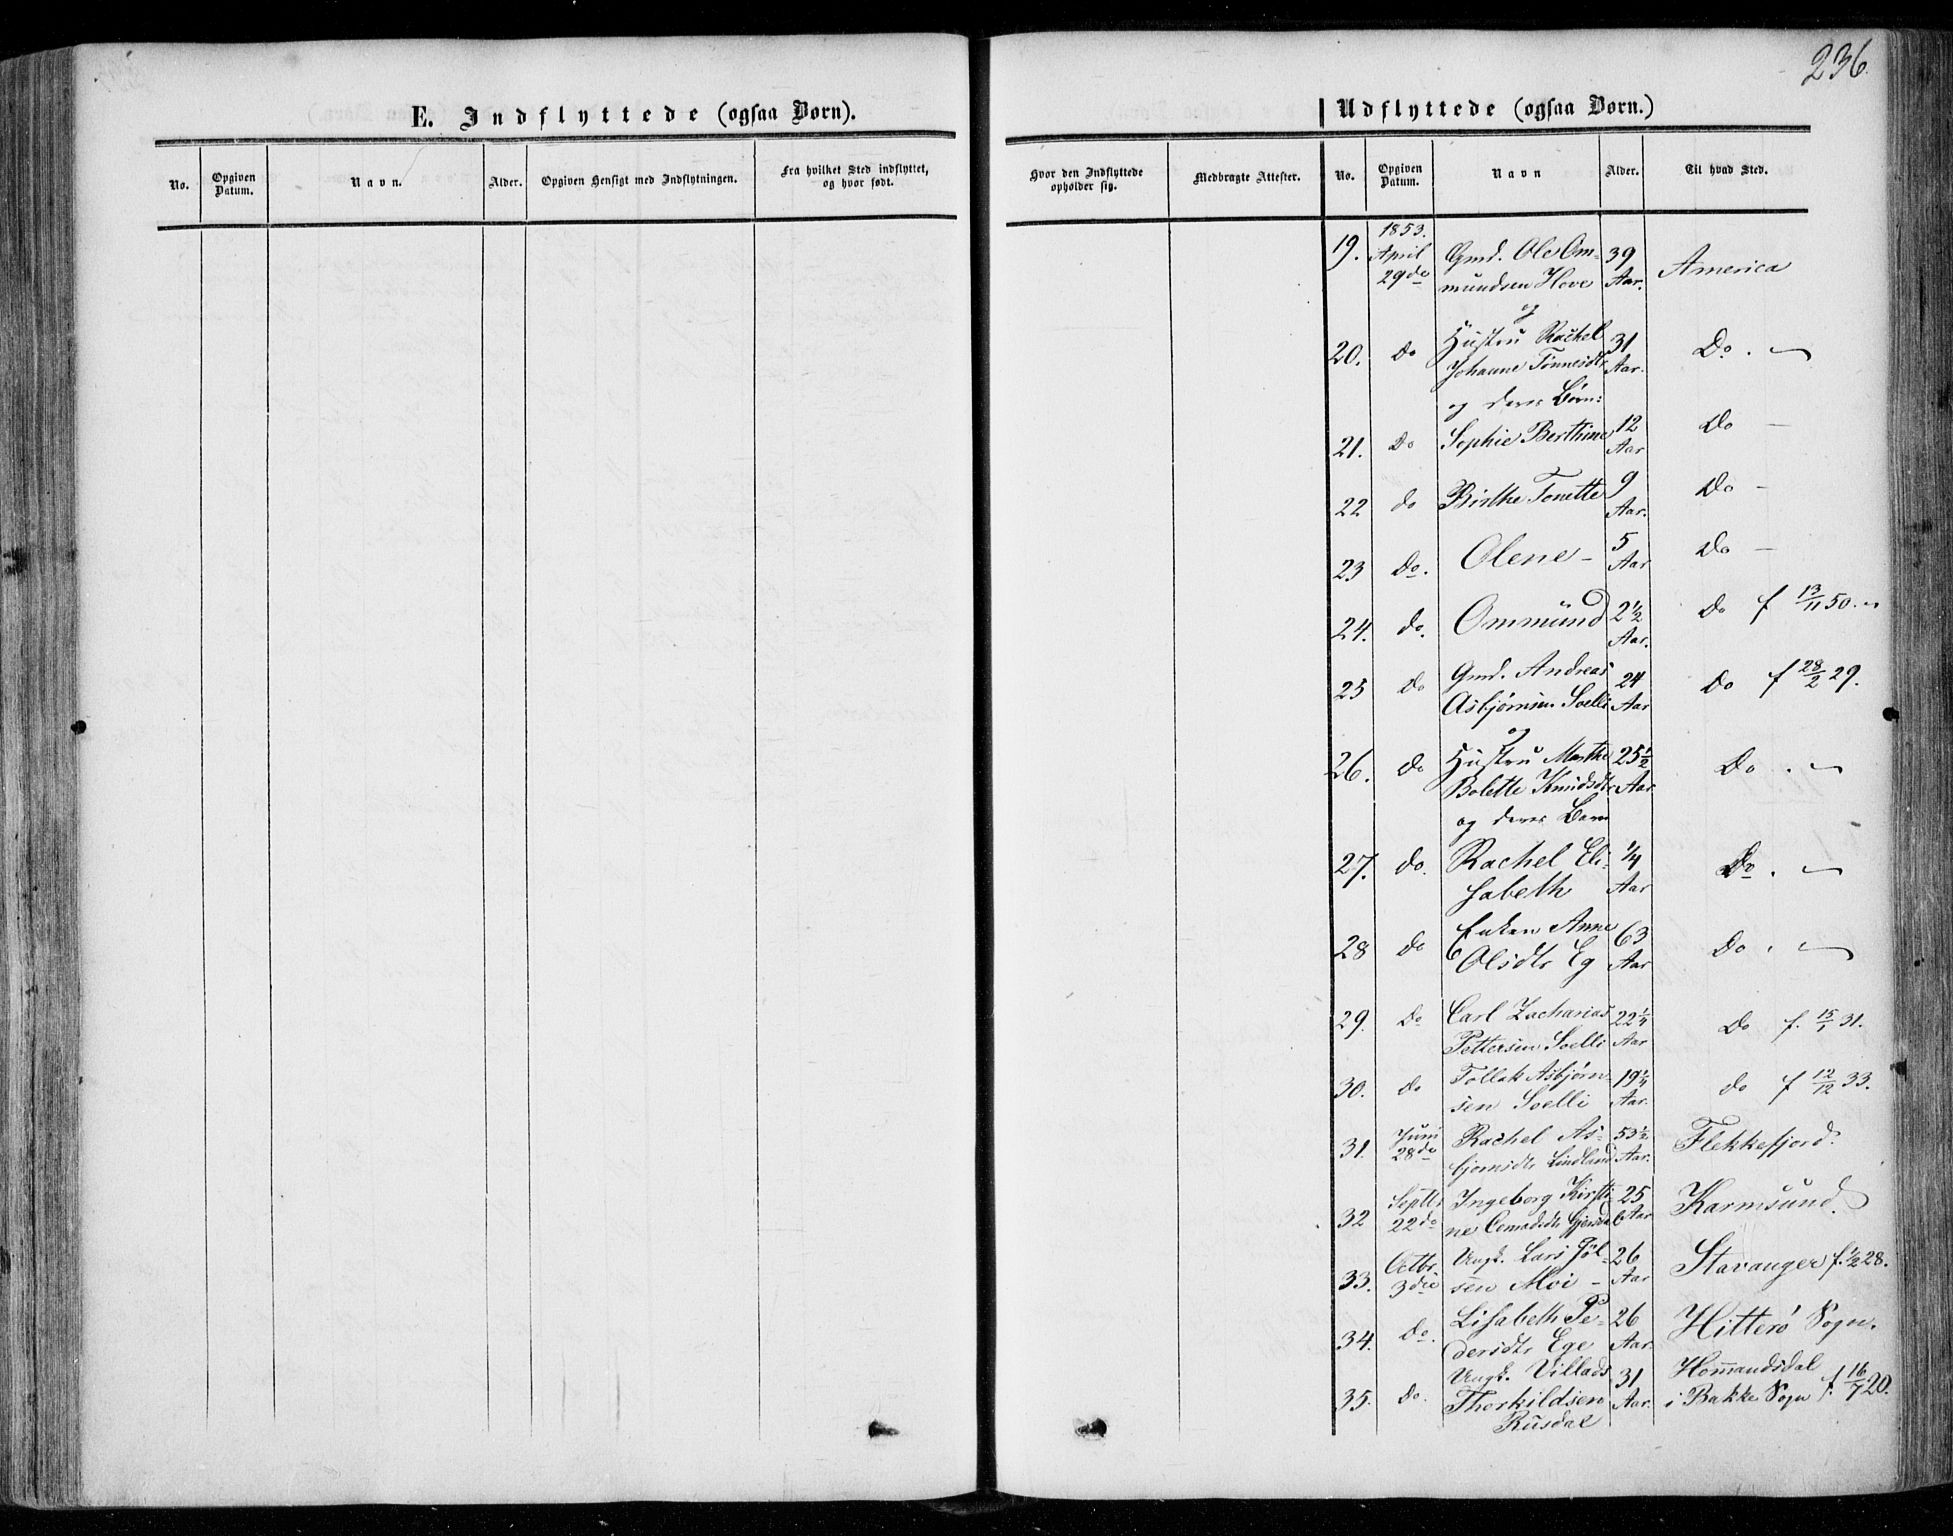 236.
E. Indflyttede (ogsaa Børn).
Udflyttede (ogsaa Børn.)
No. Opgiven Datum. Navn. Alder. Opgiven Hensigt med Indflytningen. Fra hvilket Sted indflyttet, og hvor født.
Hvor den Indflyttede opholder sig. Medbragte Attester. No. Opgiven Datum. Navn Alder. Til hvad Sted.
1853.
19. April 29de Gmd. Ole Om- 39 Aar. America
mundsen Hove
og
20. do Hustru Rachel 31 Aar. Do. -
Johanne Tønnesdtr
og deres Børn:
21. Do Sophie Berthine 12 Aar Do -
22 do Birthe Tonette 9 Aar. Do -
23 Do. Olene - 5 Aar Do -
24. do. Ommund 2½ Aar. Do f 13/11 50.
25 Do Gmd. Andreas 24 Aar Do f 28/2 29.
Asbjørnsen Soelli
og
26. Do Hustru Marthe 25½ Aar Do. -
Bolette Knudsdtr
og deres Barn
27. do. Rachel Eli- ¼ Aar Do. -
sabeth
28 do Enken Anne 63 Aar Do. -
Olsdtr Eg
29. Do Carl Zacharias 22¼ Aar Do f. 15/1 31.
Pettersen Soelli
30. do Tollak Asbjørn- 19¼ Aar. do f 12/12 33.
sen Soelli
31. Juni 28de Rachel As- 53½ Aar. Flekkefjord.
bjørnsdtr Lindland
32 Septbr 22de Ingeborg Kirsti- 25 Aar Karmsund.
ne
33. Octbr 3die Ungk. Lars 26 Aar Stavanger f. ½ 28.
sen Moi -
34. Do. Lisabeth Pe- 26 Aar. Hitterø Sogn.
dersdtr Ege
35. Do. Ungk. Villads 31 Aar. Homandsdal
Thorkildsen i Bakke Sogn f. 16/7 20.
Rusdal